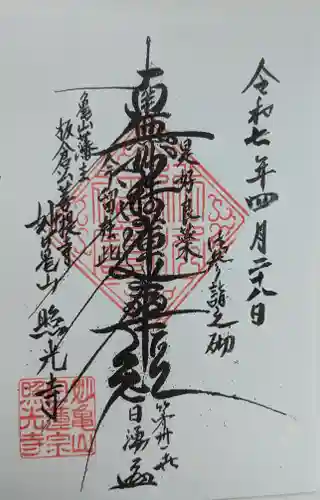 令和七年四月二十八日
御首題参詣之砌
是好良薬
南無妙法蓮華経
今留在此
亀山藩主
板倉公菩提寺
妙亀山 照光寺
第丗一世
日湧
妙亀山
日蓮宗
照光寺